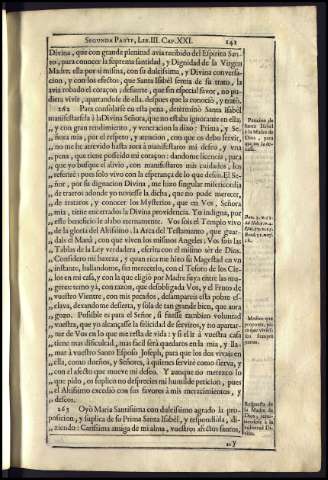 SEGUNDA PARTE, LIB. III. CAP. XXI. 241
Divina, que con grande plenitud avia recibido del Espiritu San-
to, para conocer la suprema santidad, y Dignidad de la Virgen
Madre; ella por si misma, con su dulcissima, y Divina conversa-
cion, y con los efectos, que Santa Isabèl sentia de su trato, la
avia robado el coraçon; desuerte, que sin especial favor, no pu-
diera vivir, apartandose de ella, despues que la conociò, y tratò.
262 Para consolarse en esta pena, determinò Santa Isabèl
manifestarsela à la Divina Señora, que no estaba ignorante en ella;
y con gran rendimiento, y veneracion la dixo: Prima, y Se-
ñora mia, por el respeto, y atencion, con que os debo servir,
no me he atrevido hasta aora à manifestaros mi deseo, y vna
pena, que tiene posseido mi coraçon: dandome licencia, para
que yo busque el alivio, con manifestaros mis cuidados, los
referirè: pues solo vivo con la esperança de lo que deseo. El Se-
ñor, por su dignacion Divina, me hizo singular misericordia
de traeros adonde yo tuviesse la dicha, que no pude merecer,
de trataros, y conocer los Mysterios, que en Vos, Señora
mia, tiene encerrados la Divina providencia. Yo indigna, por
este beneficio le alabo eternamente. Vos sois el Templo vivo
de la gloria del Altissimo, la Arca del Testamento, que guar-
dais el Manà, con que viven los mismos Angeles: Vos sois las
Tablas de la Ley verdadera, escrita con el mismo sèr de Dios.
Considero mi baxeza, y quan rica me hizo su Magestad en vn
instante, hallandome, sin merecerlo, con el Tesoro de los Cie-
los en mi casa, y con la que eligiò por Madre suya entre las mu-
geres: temo yà, con razon, que desobligada Vos, y el Fruto de
vuestro Vientre, con mis pecados, desampareis esta pobre es-
clava, dexando me desierta, y sola de tan grande bien, que aora
gozo. Possible es para el Señor, si fuesse tambien voluntad
vuestra, que yo alcançasse la felicidad de serviros, y no apartar-
me de Vos en lo que me resta de vida: y si el ir à vuestra casa
tiene mas dificultad, mas facil serà quedaros en la mia, y lla-
mar à vuestro Santo Esposo Joseph, para que los dos vivais en
ella, como dueños, y Señores, à quienes servirè como sierva, y
con el afecto que mueve mi deseo. Y aunque no merezco lo
que pido, os suplico no desprecieis mi humilde peticion, pues
el Altissimo excediò con sus favores à mis merecimientos, y
deseos.
263 Oyò Maria Santissima con dulcissimo agrado la pro-
posicion, y suplica de su Prima Santa Isabèl, y respondiola, di-
ziendo: Carissima amiga de mi alma, vuestros afectos santos,
y